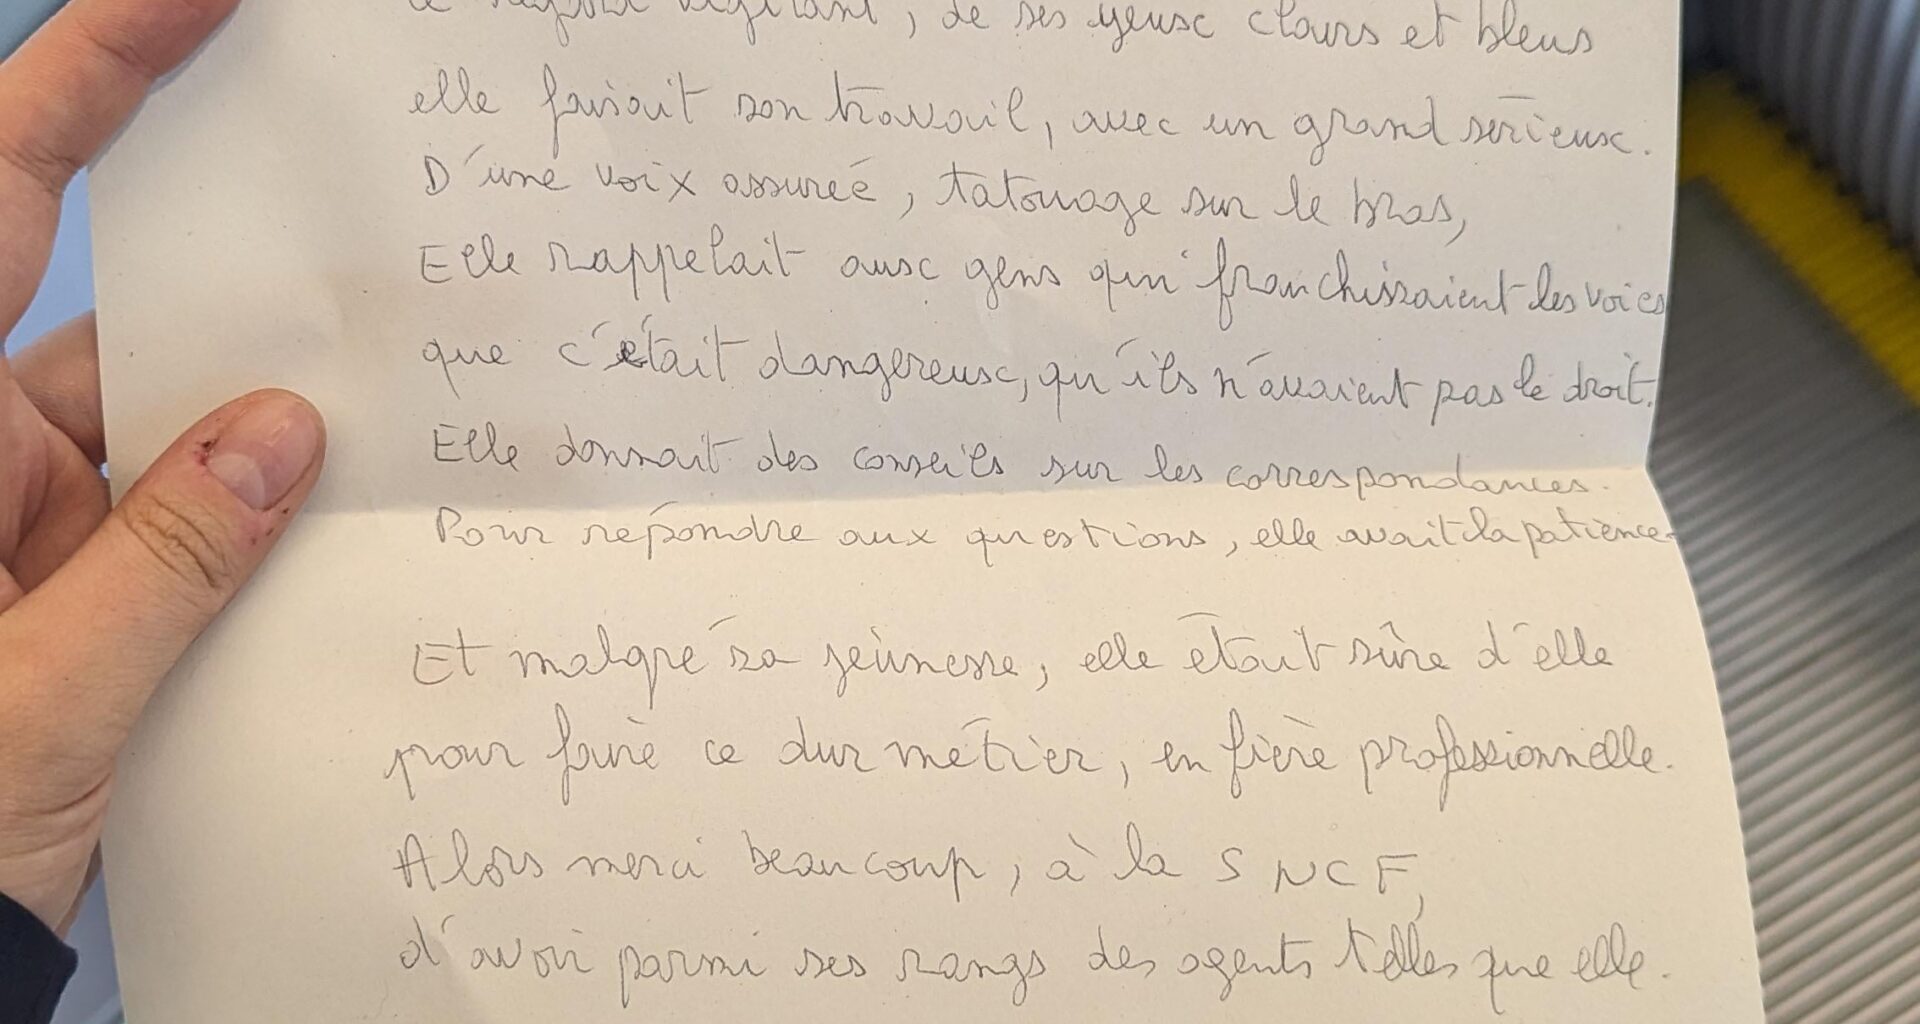 le regard vigilant, de ses yeux clairs et bleus
elle faisait son travail, avec un grand sérieux.
D'une voix assurée, tatouage sur le bras,
Elle rappelait aux gens qui franchissaient les voies
que c'était dangereux, qu'ils n'avaient pas le droit.
Elle donnait des conseils sur les correspondances.
Pour répondre aux questions, elle avait la patience.
Et malgré sa jeunesse, elle était sûre d'elle
pour faire ce dur métier, en fière professionnelle.
Alors merci beaucoup, à la SNCF,
d'avoir parmi ses rangs des agents telles que elle.